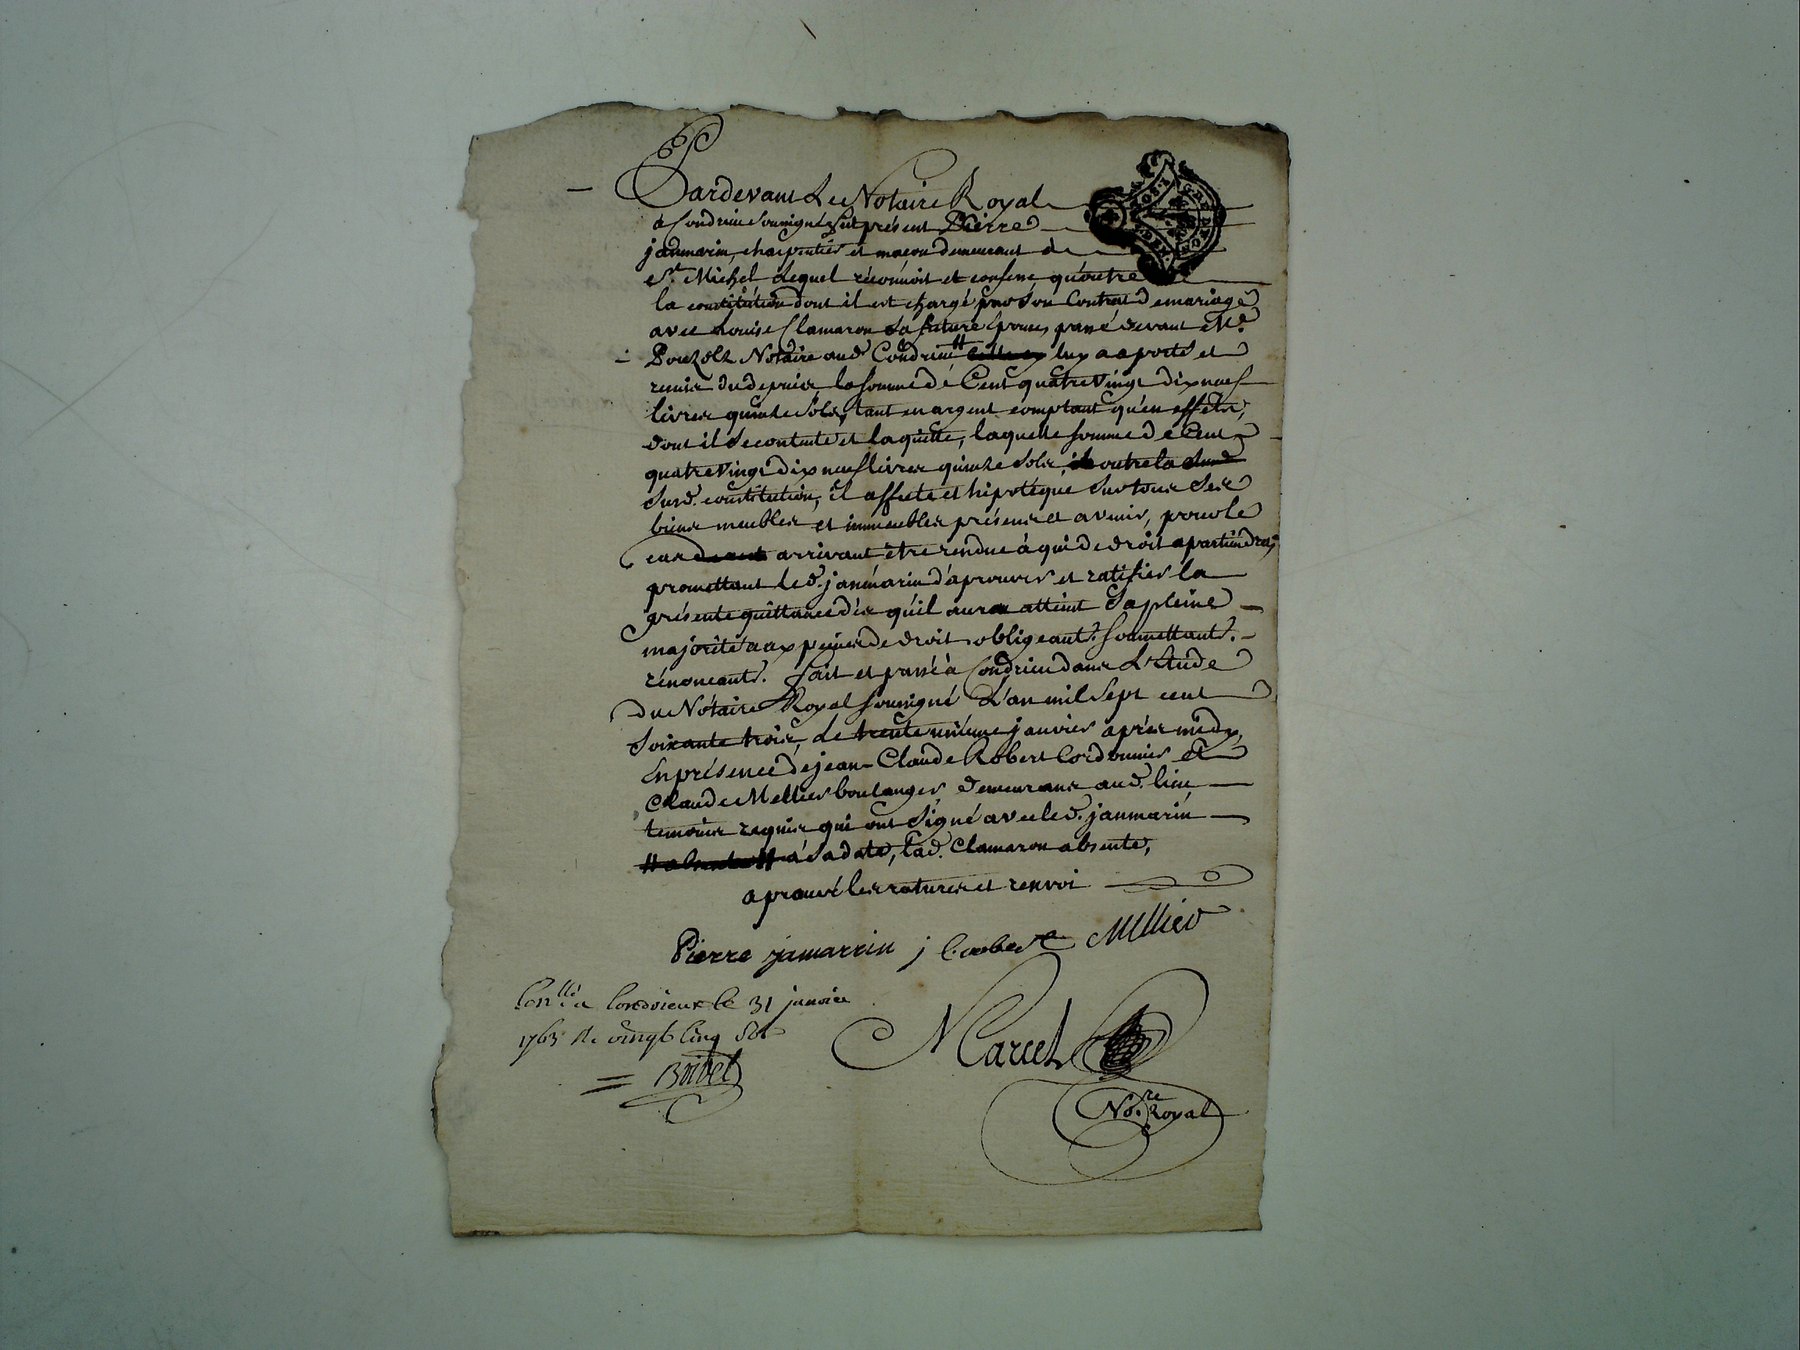 Pardevant Le Notaire Royal
à Condrieu soussigné fut présent Pierre
janmarin, charpentier et maçon demeurant à
St. Michel lequel réconnoit et confesse qu'outre
la constitution dont il est chargé par son Contrat de mariage
avec Louise Clamaron sa future Epouse, passé devant Me.
Pouzols Notaire aud. Condrieu # luy a aporté et
remis du depuis la somme dé Cent quatre vingt dix neuf
livres quinze sols, tant en argent comptant qu'en effets,
dont il se contente et la quitte, laquelle somme de Cent
quatre vingt dix neuf livres quinze sols, il outre la
susd. constitution, il affecte et hipotéque sur tous ses
biens meubles et immeubles présens et avenir, pour le
cas arrivant être rendue à qui de droit apartiendra,
promettant led. janmarin d'aprouver et ratifier la
présente quittance dès qu'il aura atteint sa pleine
majorité aux peines de droit obligeant. soumettant.
rénonçant. fait et passé à Condrieu dans L'Etude
du Notaire Royal soussigné L'an mil sept cent
soixante trois, le trente unième janvier après midy,
En présence de jean-Claude Robert Cordonnier et
Claude Mellier boulanger, demeurans aud. lieu
temoins requis qui ont signé avec led. janmarin
# # à sa date, lad. Clamaron absente,
aprouvé les ratures et renvoi
Pierre jamarrin j C Mellier
Conllé a Condrieux le 31 janvier
1763 Re vingt cinq sols
Boibel
Marcel
Nore. Royal